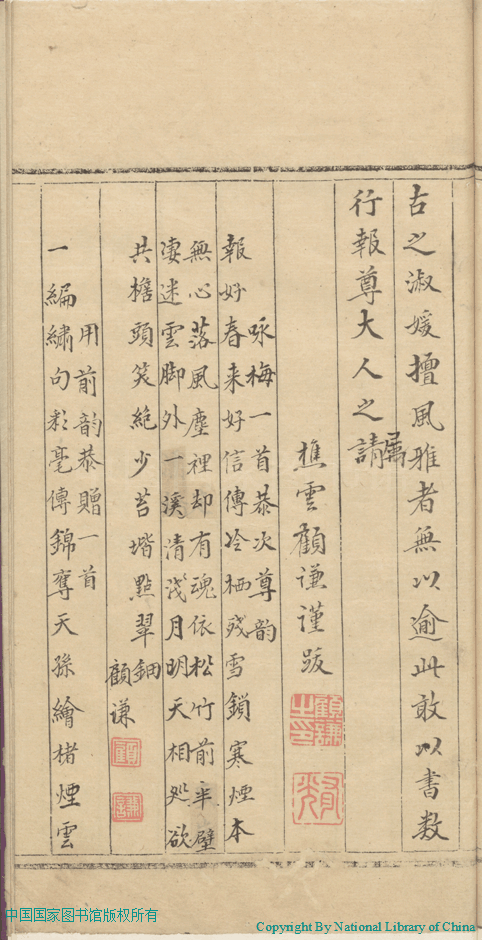 古之淑媛擅風雅者無以逾此敢以書数
行報尊大人之請
属
樵雲顧谦谨跋
咏梅一首恭次尊韵
報好春来好信傳冷栖残雪鎖寒煙本
無心落風塵裡却有魂依松竹前半壁
凄迷雲脚外一溪清浅月明天相処欲
共檐頭笑絶少苔堦點翠鈿
顧谦
用前韵恭贈一首
一編繡句彩毫傳錦奪天孫繪楮煙雲
中国国家图书馆版权所有
Copyright By National Library of China